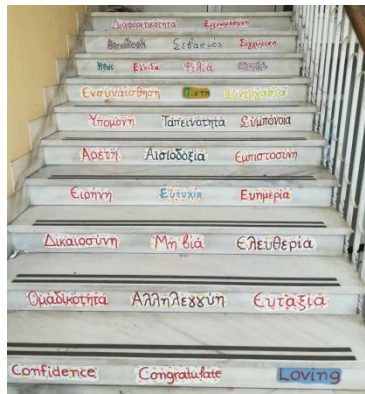 Διαφορετικότητα Εχεμύθεια
Αποδοχή Σεβασμός Συγχώρεση
Ήθος Ελπίδα Φιλία
Ενσυναίσθηση Πίστη Συνεργασία
Υπομονή Ταπεινότητα Συμπόνοια
Αρετή Αισιοδοξία Εμπιστοσύνη
Ειρήνη Ευτυχία Ευημερία
Δικαιοσύνη Μη βία Ελευθερία
Ομαδικότητα Αλληλεγγύη Ευταξία
Confidence Congratulate Loving